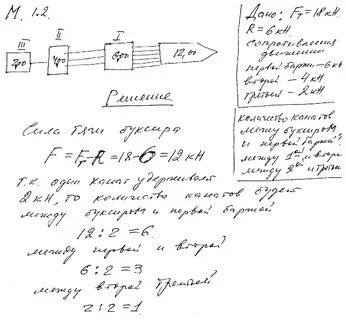 М. 1.2.
III II I
2,00 4,00 6,00 12,00
Дано: Fт = 18кН
R = 6 кН
Сопротивления
движению
первой баржи – 6кН
второй – 4 кН
третьей – 2 кН
Количество канатов
между буксиром
и первой баржей?
между 1ой и второй
между 2ой и третьей
Решение
Сила тяги буксира
F = Fт–R = 18–6 = 12 кН
Т.к. один канат удерживает
2 кН, то количество канатов будет
между буксиром и первой баржей
12 : 2 = 6
между первой и второй
6 : 2 = 3
между второй третьей
2 : 2 = 1